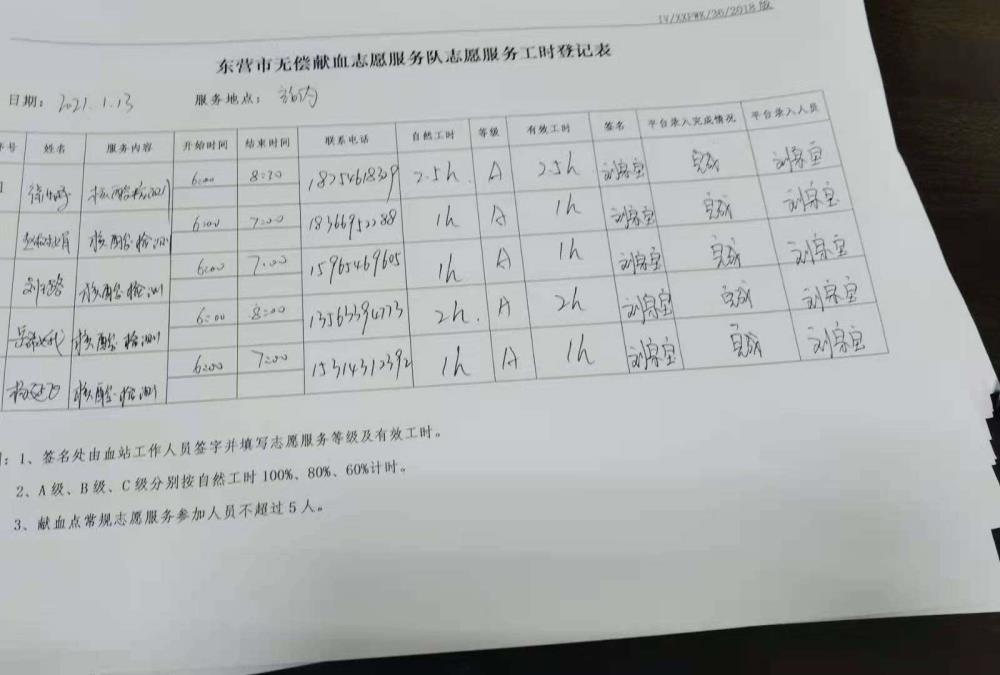 IV/XXFWK/36/2018版
东营市无偿献血志愿服务队志愿服务工时登记表
日期: 2021.1.13 服务地点: 站内
序号 姓名 服务内容 开始时间 结束时间 联系电话 自然工时 等级 有效工时 签名 平台录入完成情况 平台录入人员
1 核酸检测 6:00 8:30 18254618309 2.5h. A 2.5h 完成
核酸检测 6:00 7:00 18366952288 1h A 1h 完成
核酸检测 6:00 7:00 15965469605 1h A 1h 完成
核酸检测 6:00 8:00 13563394773 2h. A 2h 完成
核酸检测 6:00 7:00 15314312392 1h A 1h 完成
明: 1、签名处由血站工作人员签字并填写志愿服务等级及有效工时。
2、A级、B级、C级分别按自然工时100%、80%、60%计时。
3、献血点常规志愿服务参加人员不超过5人。